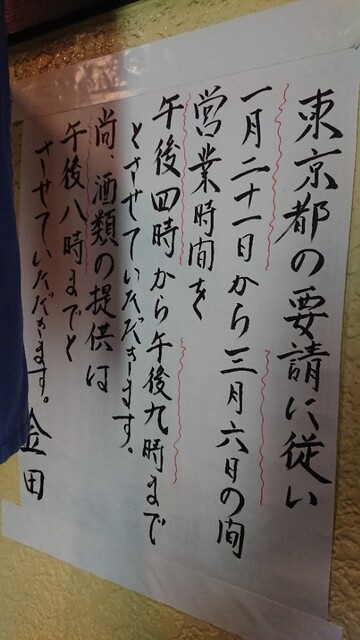 東京都の要請に従い
一月二十一日から三月六日の間
営業時間を
午後四時から午後九時まで
とさせていただきます。
尚、酒類の提供は
午後八時までと
させていただきます。
金田